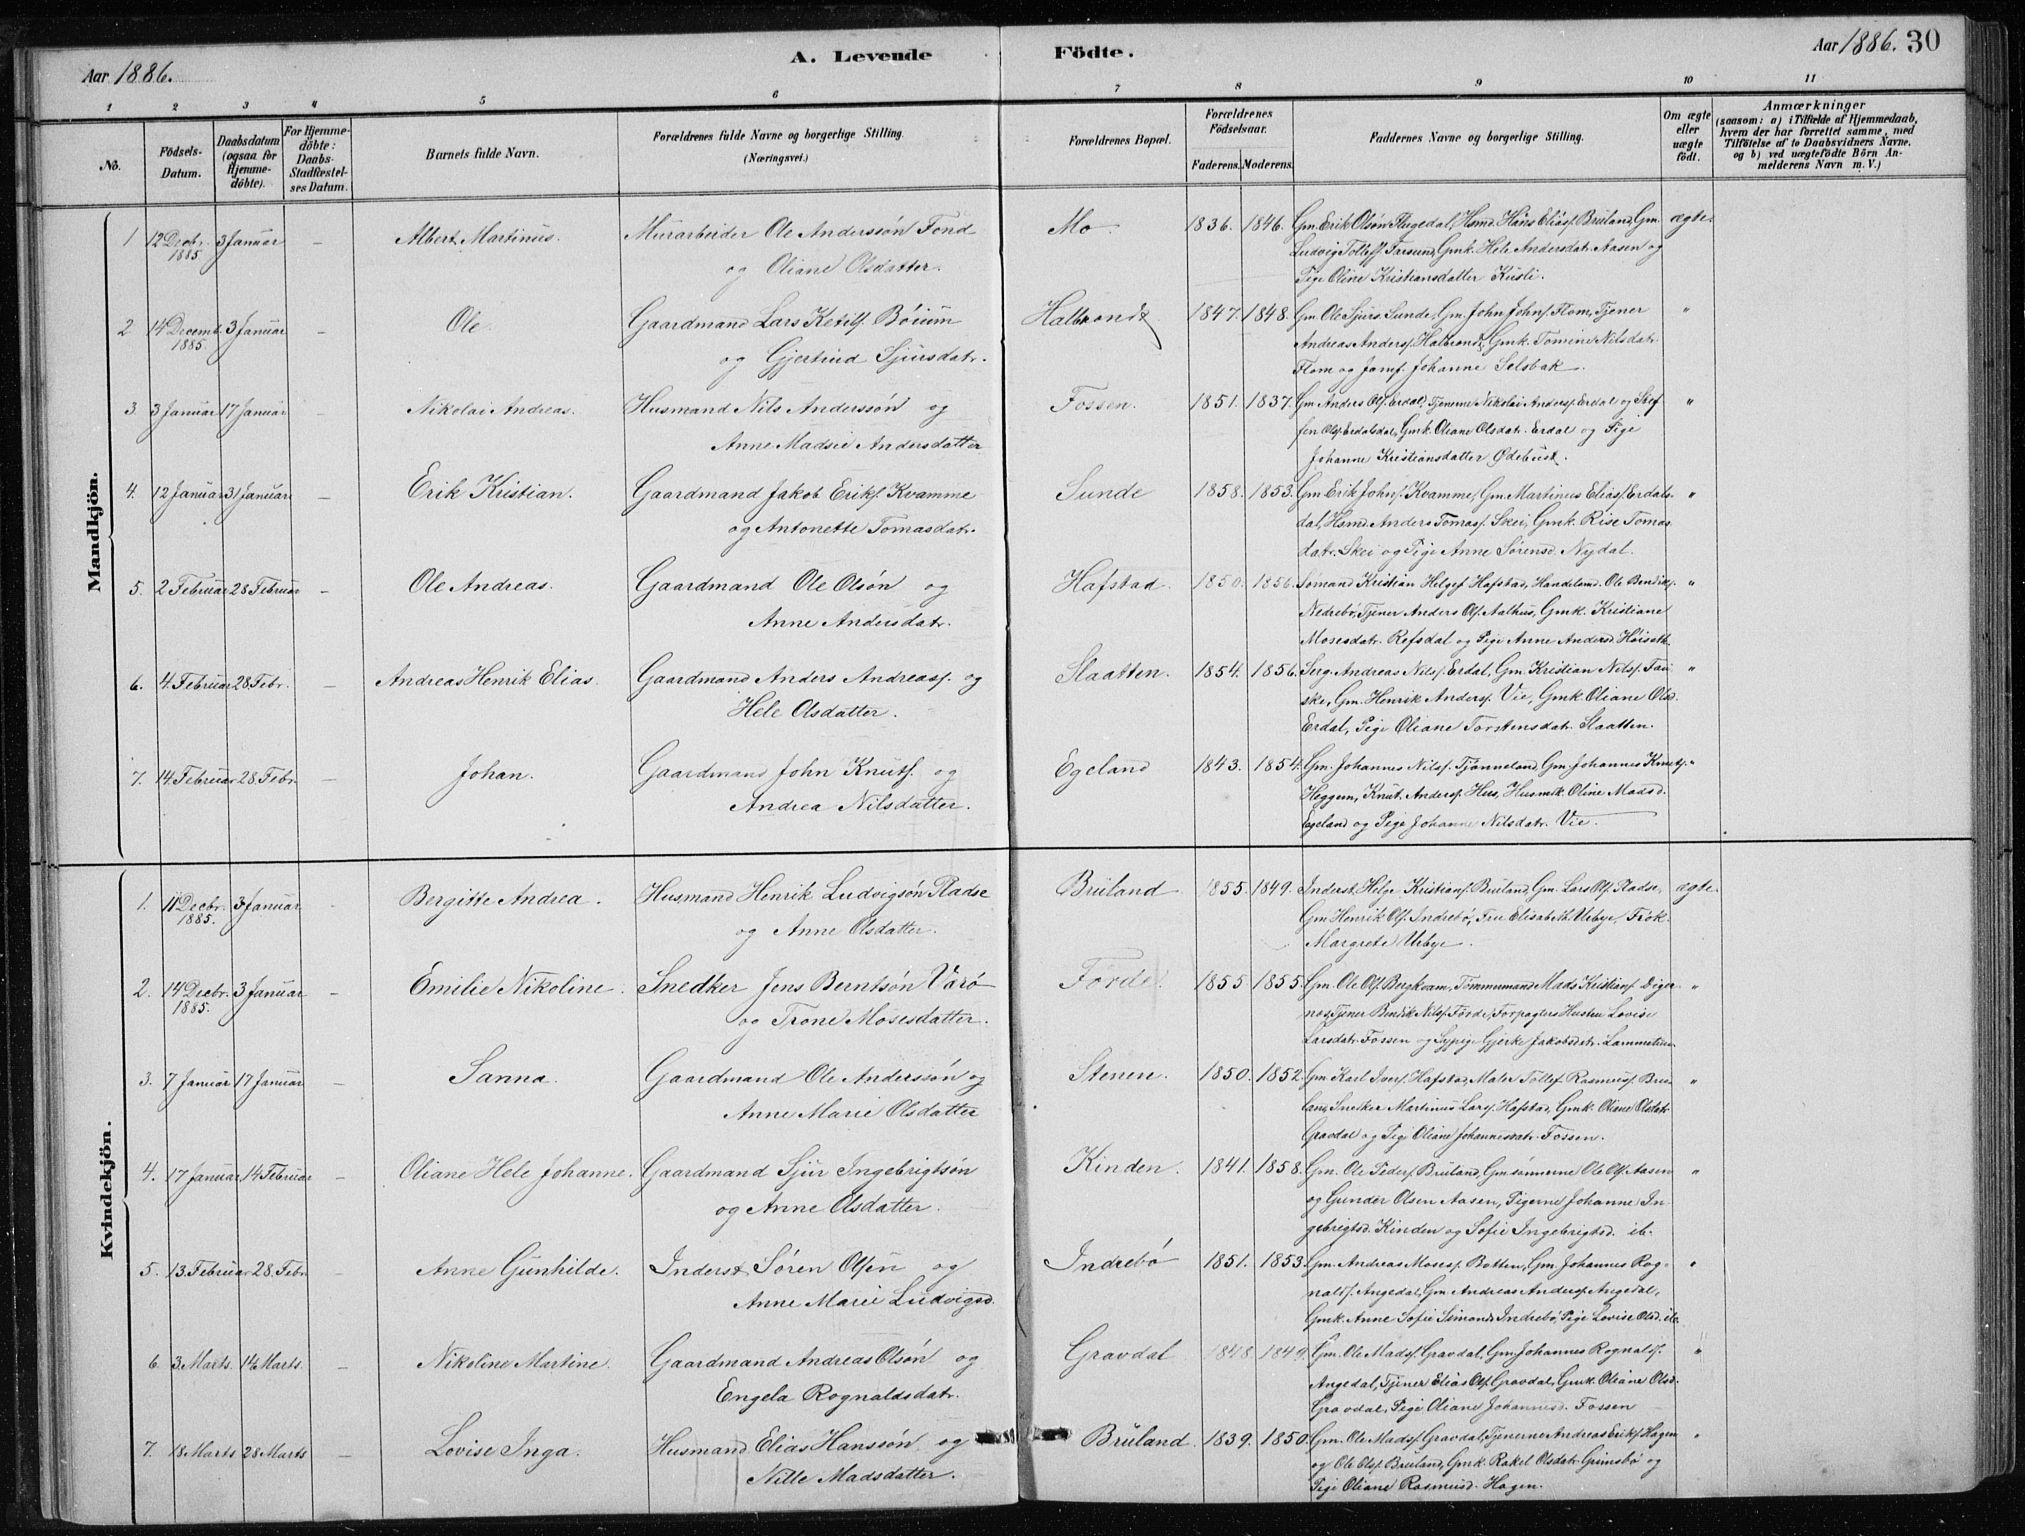 Aar 1886.
A. Levende Födte.
Aar 1886. 30
1 2 3 4 5 6 7 8 9 10 11
No.
Födsels-Datum.
Daabsdatum (ogsaa for Hjemme-döbte).
For Hjemme-döbte: Daabs-Stadfæstel-ses Datum.
Barnets fulde Navn.
Forældrenes fulde Navne og borgerlige Stilling. (Næringsvei.)
Forældrenes Bopæl.
Forældrenes Födselsaar.
Faderens. Moderens.
Faddernes Navne og borgerlige Stilling.
Om ægte eller uægte födt.
Anmærkninger
(saasom: a) i Tilfælde af Hjemmedaab,
hvem der har forrettet samme, med
Tilföielse af to Daabsvidners Navne.
og b) ved uægtefödte Börn An-
melderens Navn m. V.)
Mandkjön.
1 12 Decbr. 1885 3 Januar - Albert Martinus. Murarbeider Ole Anderssön Fond Mo. 1836. 1846. Gm. Erik Olsön Flugedal, Hsmd. Hans Eliasf. Bruland, Gm. ægte.
og Oliane Olsdatter. Ludvig Tollefs. Farsund, Gmk. Hele Andersdatr. Aasen og
Pige Oline Kristiansdatter Kusli.
2 14 Decemb. 1885. 3 Januar - Ole. Gaardmand Lars Ketilf. Böium Halbrendt 1847. 1848. Gm. Ole Sjurs. Sunde, Gm. John Johnf. Flom, Tjener "
og Gjertrud Sjursdatr. Andreas Andersf. Halbrendt, Gmk. Tomine Nilsdatr.
Flom og Jomf. Johanne Selsbak.
3. 3 Januar 17 Januar - Nikolai Andreas. Husmand Nils Anderssön og Fossen. 1851. 1837. Gm Anders Olf. Erdal, Tjenerne Nikolai Andersf. Erdal og Stef "
Anne Madsie Andersdatter fen Olf. Erdalsdal, Gmk. Oliane Olsdatr. Erdal og Pige
Johanne Kristiansdatter Ødebust.
4. 12 Januar 31 Januar - Erik Kristian. Gaardmand Jakob Erikf. Kvamme Sunde 1858. 1853. Gm Erik Johnf. Kvamme, Gm. Martinus Eliasf. Erdals- "
og Antonette Tomasdatr. dal, Hsmd. Anders Tomasf. Skei, Gmk. Rise Tomas
datr. Skei og Pige Anne Sørensd. Nydal.
5. 2 Februar 28 Februar - Ole Andreas. Gaardmand Ole Olsön og Hafstad. 1850. 1856. Sømand Kristian Helgef. Hafstad, Handelsmd. Ole Bendiks. "
Anne Andersdatr. Nedrebö, Tjener Anders Olf. Aalhus, Gmk. Kristiane
Mosesdatr. Refsdal og Pige Anne Andersd.
6. 4. Februar 28 Febr. - Andreas Henrik Elias. Gaardmand Anders Andreasf. og Slaatten. 1854. 1856. Serg. Andreas Nilsf. Erdal, Gm. Kristian Nilsf. Fau "
Hele Olsdatter. ske, Gm. Henrik Andersf. Vie, Gmk Oliane Olsd.
Erdal, Pige Oliane Torstensdatr. Slaatten.
7. 14 Februar 28 Febr. - Johan. Gaardmand John Knutf. og Egeland 1843. 1854. Gm. Johannes Nilsf. Tjønneland, Gm. Johannes Knutf. "
Andrea Nilsdatter. Heggem, Knut Andersf. Hus, Husmk. Oline Madsd.
Egeland og Pige Johanne Nilsdatr. Vie.
Kvindekjön.
1. 11 Decbr. 1885. 3 Januar - Bergitte Andrea. Husmand Henrik Ludvigsön Pladse Bruland 1855. 1849. Inderst. Helge Kristianf. Bruland, Gm. Lars Olf. Pladse, ægte.
og Anne Olsdatter. Gm Henrik Olf. Indrebö, Fru Elisabeth Urbye, Frøk.
Margrete Urbye.
2. 14 Decbr. 1885. 3 Januar - Emilie Nikoline. Snedker Jens Berntsön Värö Förde. 1855 1855. Gm. Ole Olf. Bergkvam, Tømmermand Mads Kristianf. Diger- "
og Trone Mosesdatter. nos, Tjener Bendik Nilsf. Förde, Forpagters Hustru Lovise
Larsdatr. Fossen og Sypige Gjerke Jakobsdatr. Lammetun.
3. 7 Januar 17 Januar - Sanna. Gaardmand Ole Anderssön og Stenen. 1850. 1852. Gm. Karl Iverf. Hafstad, Maler Tollef Rasmusf. Bru- "
Anne Marie Olsdatter land, Snedker Martinus Larsf. Hafstad, Gmk. Oliane Olsdatr.
Gravdal og Pige Oliane Johannesdatr. Fossen.
4. 17 Januar 14 Februar - Oliane Hele Johanne. Gaardmand Sjur Ingebrigtsön Kinden. 1841. 1858. Gm. Ole Pedersf. Bruland, Gmsønnerne Ole Olf. Aasen "
og Anne Olsdatter. og Gunder Olsen Aasen, Pigerne Johanne In-
gebrigtsd. Kinden og Sofie Ingebrigtsd. ib.
5. 13. Februar 28. Febr. - Anne Gunhilde. Inderst Søren Olsen og Indrebö 1851. 1853. Gm. Andreas Mosesf. Botten, Gm. Johannes Rog- "
Anne Marie Ludvigsd. naldf. Angedal, Gm Andreas Andersf. Angedal,
Gmk. Anne Sofie Simonds Indrebö, Pige Lovise Olsd. ib.
6. 3 Marts. 14 Marts. - Nikoline Martine. Gaardmand Andreas Olsön og Gravdal 1848 1849. Gm. Ole Madsf. Gravdal, Gm. Johannes Rognaldf. "
Engela Rognaldsdatr. Angedal, Tjener Elias Olf. Gravdal, Gmk. Oliane Olsd.
Gravdal, Pige Oliane Johannesd. Fossen
7. 18 Marts 28 Marts - Lovise Inga. Husmand Elias Hanssön og Bruland 1839. 1850. Gm. Ole Madsf. Gravdal, Tjenerne Andreas Erikf. Hagen "
Nille Madsdatter. og Ole Olsf. Bruland, Gmk. Rakel Olsdatr. Grimsbø og
Pige Oliane Rasmusd. Hagen.